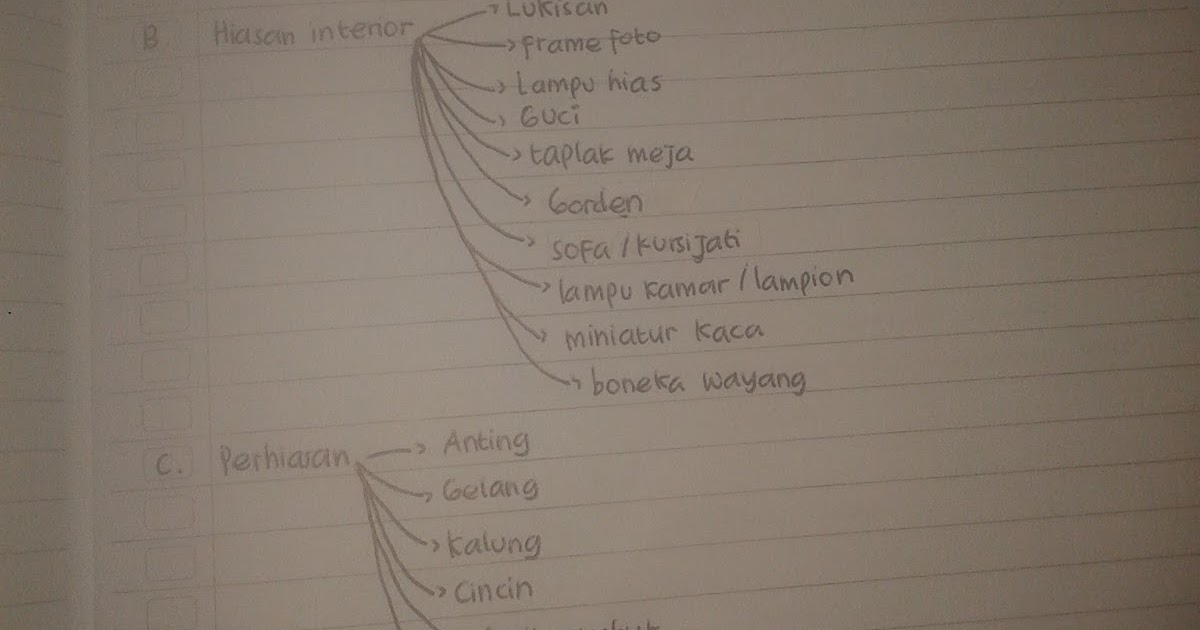 Lukisan
B Hiasan interior
frame foto
Lampu hias
Guci
taplak meja
Gorden
sofa / kursi jati
lampu kamar / lampion
miniatur kaca
boneka wayang
C. Perhiasan
Anting
Gelang
Kalung
Cincin